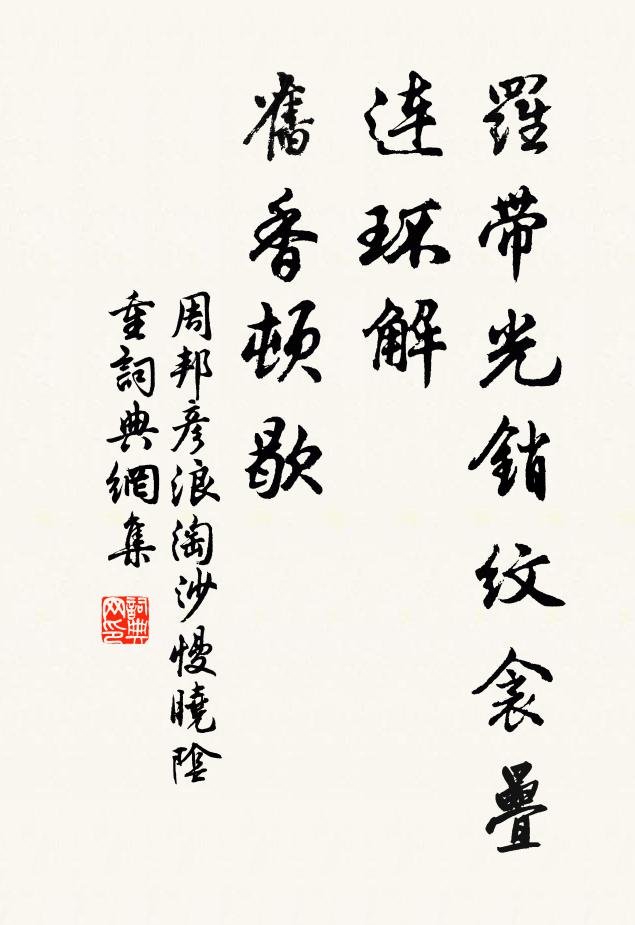 羅帶光銷紋衾疊
連環解
舊香頓歇
周邦彥浪淘沙慢曉陰
重詞典網集
詞典网印